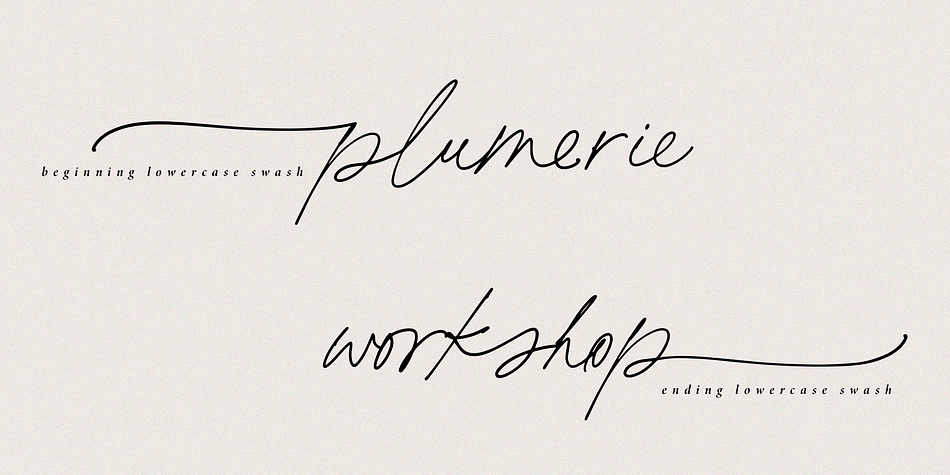 plumerie
beginning lowercase swash
workshop
ending lowercase swash